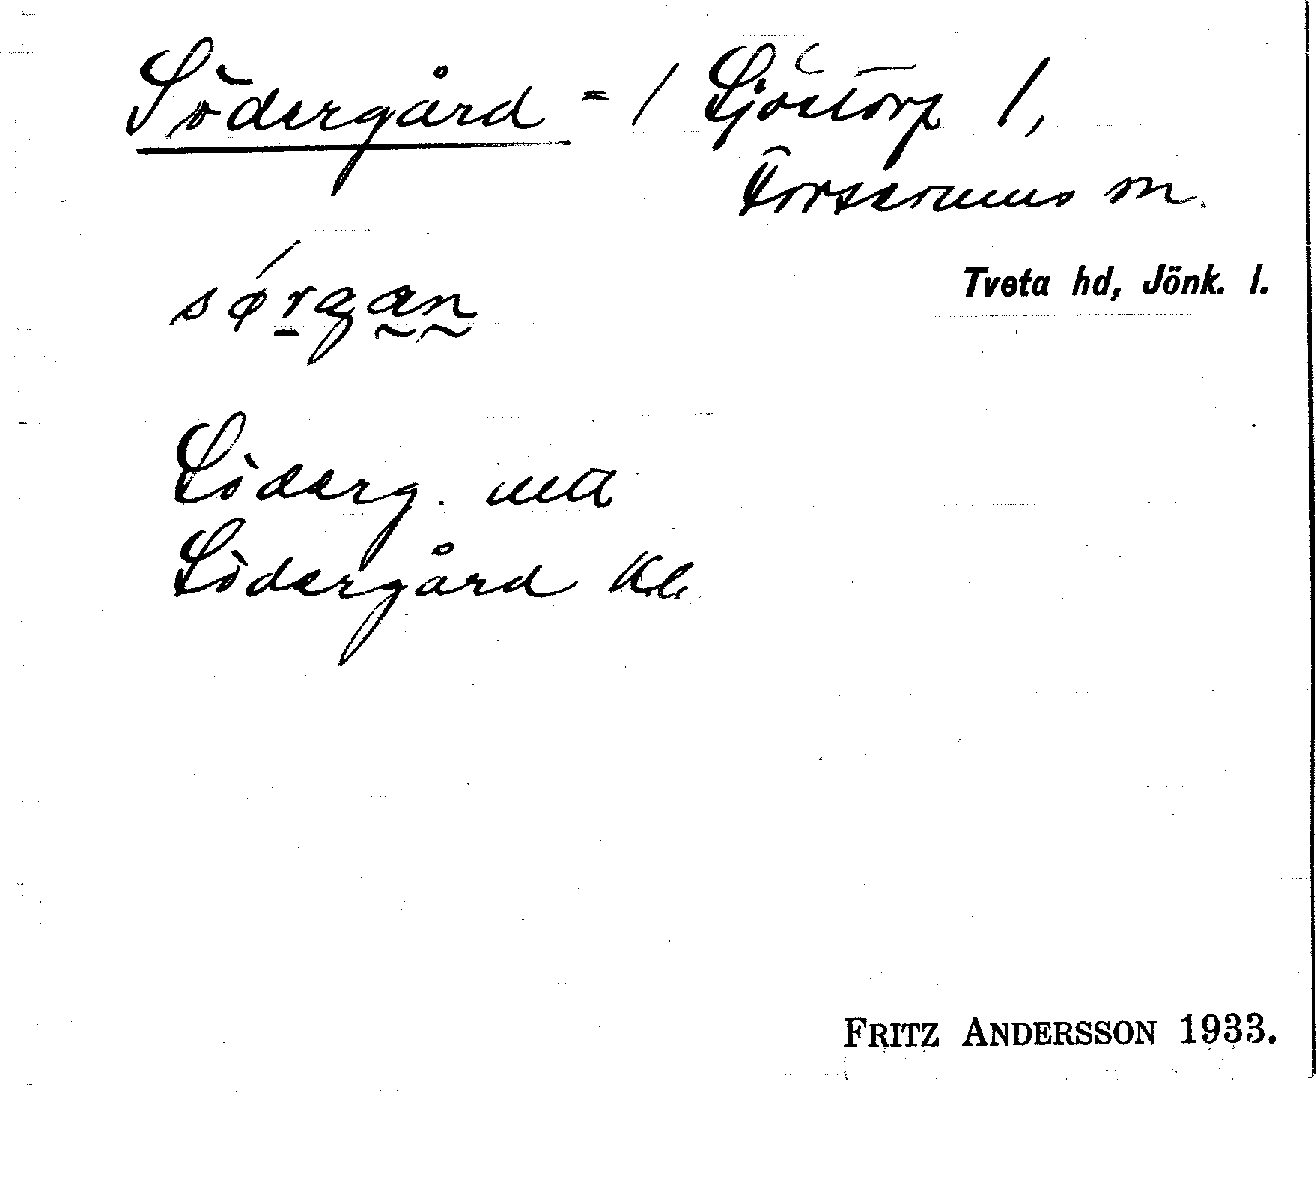 Södergård = / Sjöstorp 1,
Forserums sn.
Tveta hd, Jönk. l.
sǿrgan
Söderg. uttal
Södergård Kb.
FRITZ ANDERSSON 1933.